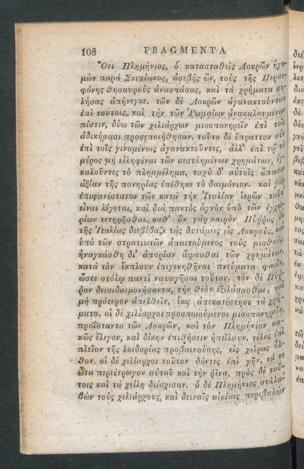 108 FRAGMENTA
Ὅτι Πλημήνιος, ὁ κατασταθεὶς Λοκρῶν ἡγε-
μὼν παρὰ Σκιπίωνος, ἀσεβὴς ὢν, τοὺς τῆς Περσε-
φόνης θησαυροὺς ἀνασπάσας, καὶ τὰ χρήματα συ-
λήσας ἀπήνεγκε. τῶν δὲ Λοκρῶν ἀγανακτούντων
ἐπὶ τούτοις, καὶ τὴν τῶν Ῥωμαίων ἀνακαλουμένων
πίστιν, δύω τῶν χιλιάρχων μισοπονηρεῖν ἐπὶ τοῖς
ἀδικήμασι προσεποιήθησαν. τοῦτο δὲ ἔπραττον οὐκ
ἐπὶ τοῖς γινομένοις ἀγανακτοῦντες, ἀλλ' ἐπὶ τῷ τὸ
μέρος μὴ εἰληφέναι τῶν σεσυλημένων χρημάτων,
καλοῦντες τὸ πλημμέλημα. ταχὺ δ' αὐτοῖς ἅπασιν
ἀξίαν τῆς πονηρίας ἐπέθηκε τὸ δαιμόνιον. καὶ γὰρ
ἐπιφανέστατον τῶν κατὰ τὴν Ἰταλίαν ἱερῶν τοῦτ'
εἶναι λέγεται, καὶ διὰ παντὸς ἁγνὸν ὑπὸ τῶν ἐγχω-
ρίων τετηρῆσθαι. καθ' ὃν γὰρ καιρὸν Πύῤῥος ἐκ
τῆς Ἰταλίας διεβίβαζε τὰς δυνάμεις εἰς Λοκροὺς,
ὑπὸ τῶν στρατιωτῶν ἀπαιτούμενος τοὺς μισθοὺς
ἠναγκάσθη δι' ἀπορίαν ἅψασθαι τῶν χρημάτων.
κατὰ τὸν ἔκπλουν ἐπιγενηθῆναι πνεύματα φασὶν,
ὥστε στόλῳ παντὶ ναυαγῆσαι τοῦτον. τὸν δὲ Πύῤ-
ῥον δεισιδαιμονήσαντα, τὴν θεὸν ἐξιλάσασθαι, καὶ
μὴ πρότερον ἀπελθεῖν, ἕως ἀπεκατέστησε τὰ χρή-
ματα. οἱ δὲ χιλίαρχοι προσποιούμενοι μισοπονηρεῖν
προΐσταντο τῶν Λοκρῶν, καὶ τὸν Πλημήνιον κα-
κῶς ἔλεγον, καὶ δίκην ἐπιθήσειν ἠπείλουν. τέλος ἐπὶ
πλεῖον τῆς λοιδορίας προβαινούσης, εἰς χεῖρας ἦλ-
θον. οἱ δὲ χιλίαρχοι τοῦτον δόντες ἐπὶ γῆν, τά τε
ὦτα περιέτρωγον αὐτοῦ καὶ τὴν ῥῖνα, πρὸς δὲ τού-
τοις καὶ τὰ χείλη διέσχισαν. ὁ δὲ Πλημήνιος συλλα-
βὼν τοὺς χιλιάρχους, καὶ δειναῖς αἰκίαις περιβαλὼν